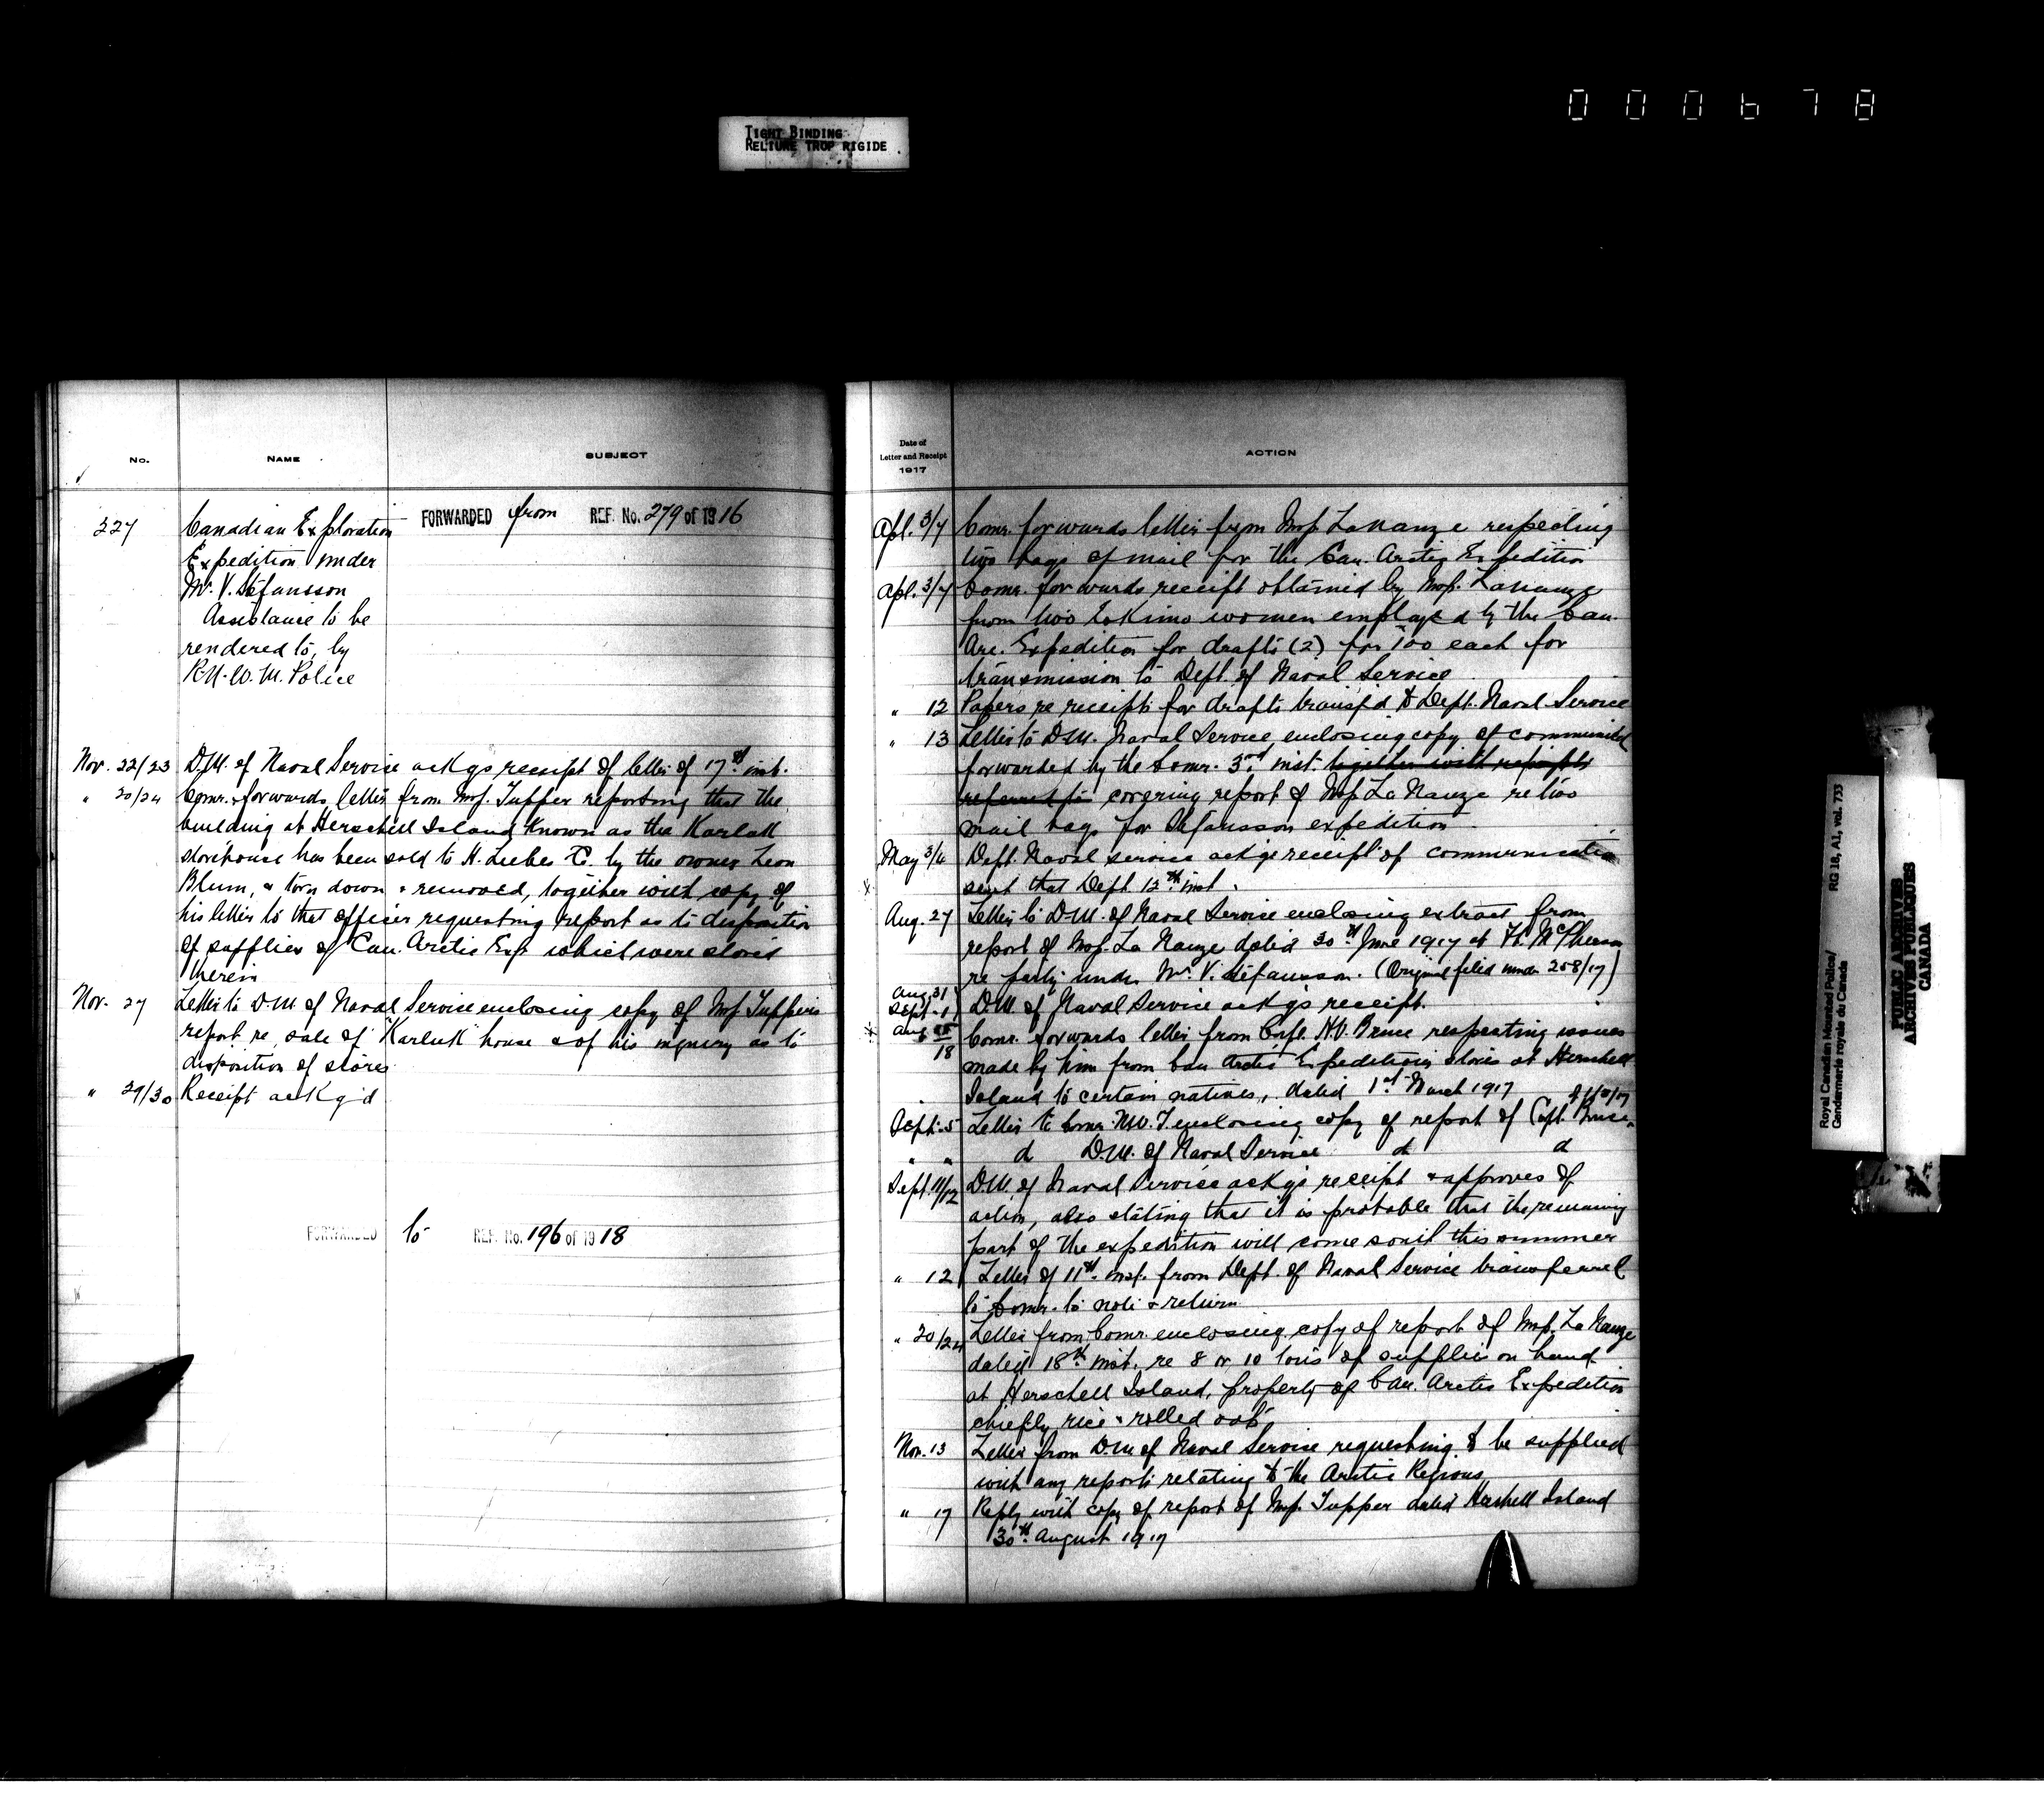 000678
TIGHT BINDING
RELIURE TROP RIGIDE
No.
NAME
SUBJECT
227
Canadian Exploration
Expedition under
Mr. V. Stefansson
Assistance to be
rendered to, by
R.N.W.M. Police
FORWARDED from REF. No. 279 of 1916
Nov. 22/23 D.M. of Naval Service ackgs receipt of letter of 17th inst.
" 20/24 Comr. forwards letter from Insp. Tupper reporting that the
building at Herschell Island known as the Karluk
storehouse has been sold to H. Liebes Co. by the owner Leon
Blum, & torn down & removed, together with copy of
his letter to that officer requesting report as to disposition
of supplies of Can. Arctic Exp. which were stored
therein
Nov. 27 Letter to D.M. of Naval Service enclosing copy of Insp. Tupper's
report re, sale of "Karluk" house & of his inquiry as to
disposition of stores
" 29/30 Receipt ackg'd
FORWARDED to REF. No. 196 of 1918
Date of
Letter and Receipt
1917
ACTION
Apl. 3/7 Comr. forwards letter from Insp. LaNauze respecting
two bags of mail for the Can. Arctic Expedition
Apl. 3/7 Comr. forwards receipt obtained by Insp. LaNauze
from two Eskimo women employed by the Can.
Arc. Expedition for drafts (2) for 100 each for
transmission to Dept. of Naval Service
" 12 Papers re receipts for drafts transf'd to Dept. Naval Service
" 13 Letter to D.M. Naval Service enclosing copy of
forwarded by the Comr. 3rd inst. together with
referred to covering report of Insp La Nauze re two
mail bags for Stefansson expedition
May 3/4 Dept. Naval service ackgs receipt of communication
sent that Dept. 12th inst.
Aug. 27 Letter to D.M. of Naval Service enclosing extract from
report of Insp. La Nauze dated 30th June 1917 at Ft. McPherson
re party under Mr. V. Stefansson. (Original filed under 258/17)
Aug. 31
Sept. 1 D.M. of Naval Service ackg's receipt.
Aug
18 Comr. forwards letter from Corpl. H.V. Bruce respecting issues
made by him from Can Arctic Expedition stores at Herschell
Island to certain natives, dated 1st March 1917
Sept. 5 Letter to Comr. N.W.T. enclosing copy of report of Bruce
" " d D.M. of Naval Service d d
Sept. 11/12 D.M. of Naval Service ackgs receipt & approves of
action, also stating that it is probable that the remaining
part of the expedition will come south this summer
" 12 Letter of 11th inst. from Dept. of Naval Service transferred
to Comr. to note & return
" 20/24 Letter from Comr. enclosing copy of report of Insp. La Nauze
dated 18th inst. re 8 or 10 tons of supplies on hand
at Herschell Island, property of Can. Arctic Expedition
chiefly rice & rolled oats
Nov. 13 Letter from D.M of Naval Service requesting to be supplied
with any reports relating to the Arctic Regions
" 17 Reply with copy of report of Insp. Tupper dated Hershell Island
30th August 1917
Royal Canadian Mounted Police/
Gendarmerie royale du Canada
RG 18, A1, vol. 733
PUBLIC ARCHIVES
ARCHIVES PUBLIQUES
CANADA